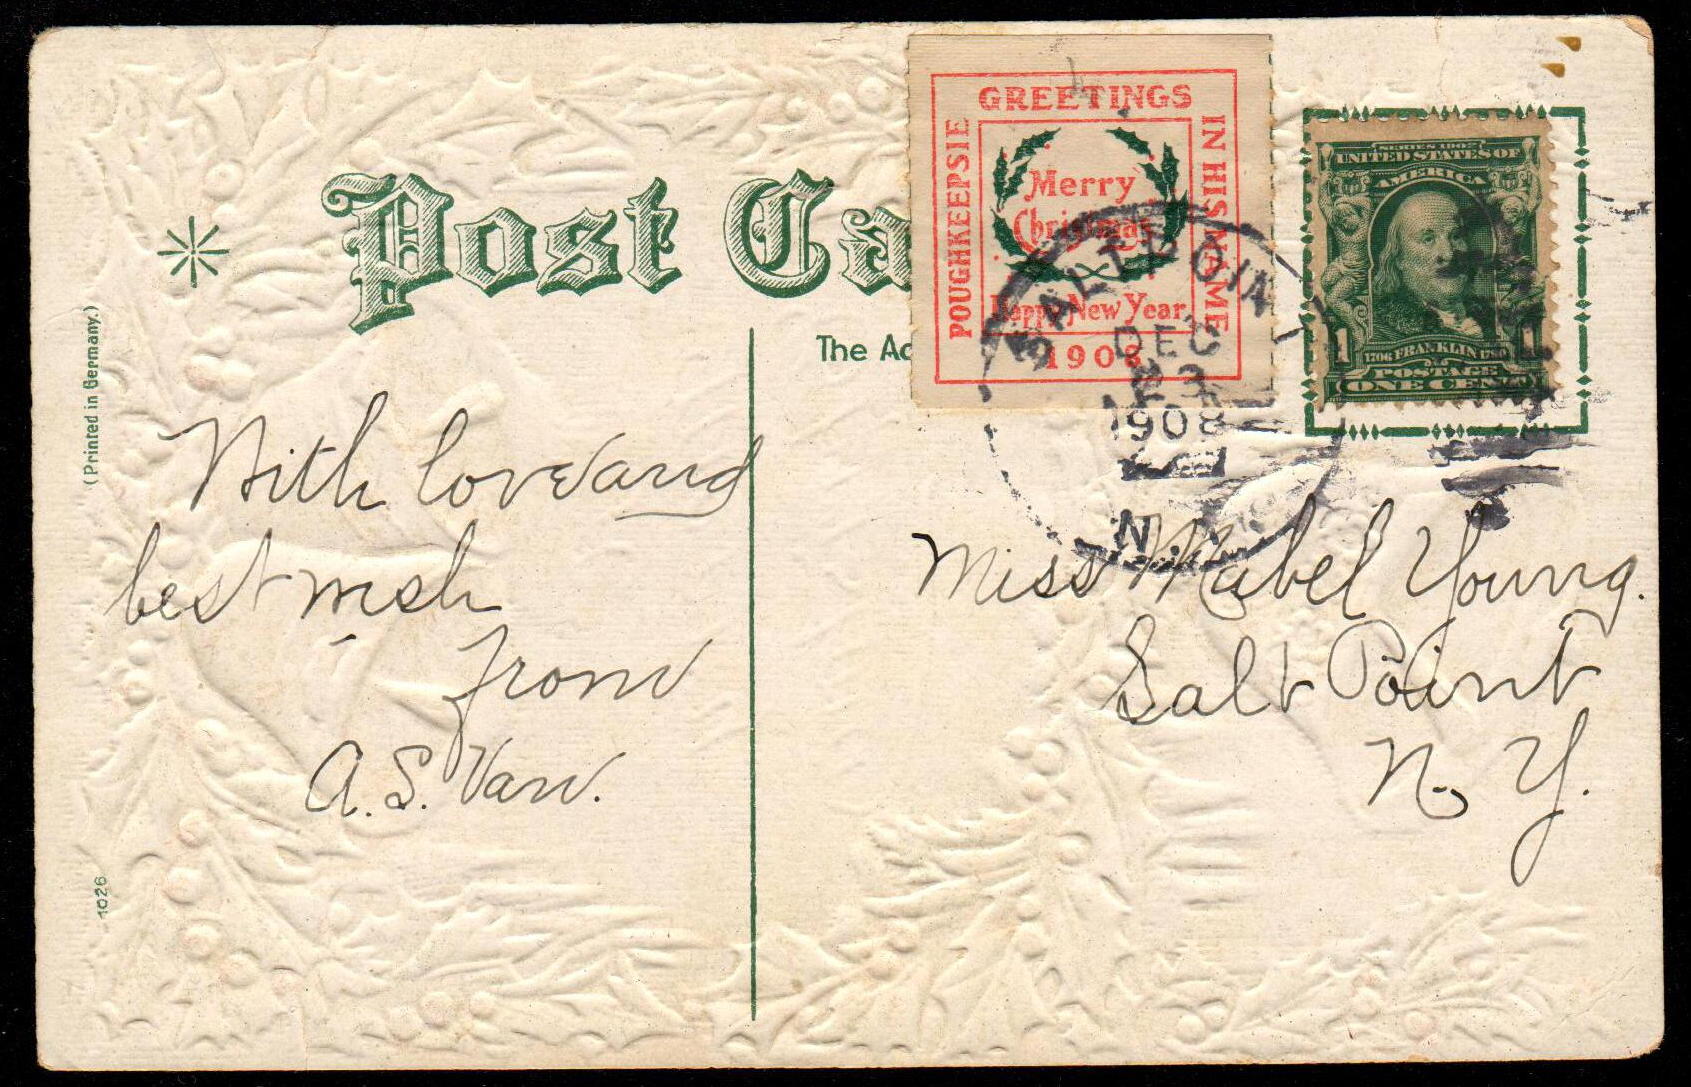 Post Ca
The Ad
(Printed in Germany.)
1026
GREETINGS
POUGHKEEPSIE
IN HIS NAME
Merry
Christmas
Happy New Year
1908
SERIES 1902
UNITED STATES OF
AMERICA
1706 FRANKLIN 1790
POSTAGE
ONE CENT
1
1
SALT POINT
DEC
23
1908
N.Y.
With love and
best wish
from
A.S. Van.
Miss Mabel Young.
Salt Point
N. Y.